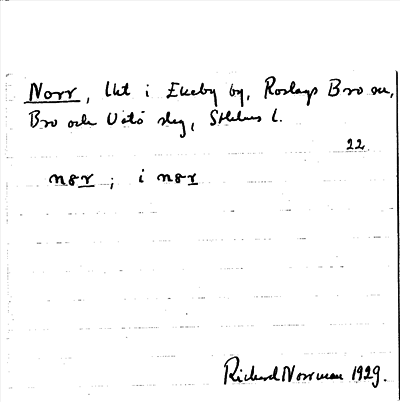 Norr, lht i Ekeby by, Roslags Bro sn,
Bro och Vätö skg, Sthlms l.
22
nør ; i nør
Richard Norrman 1929.